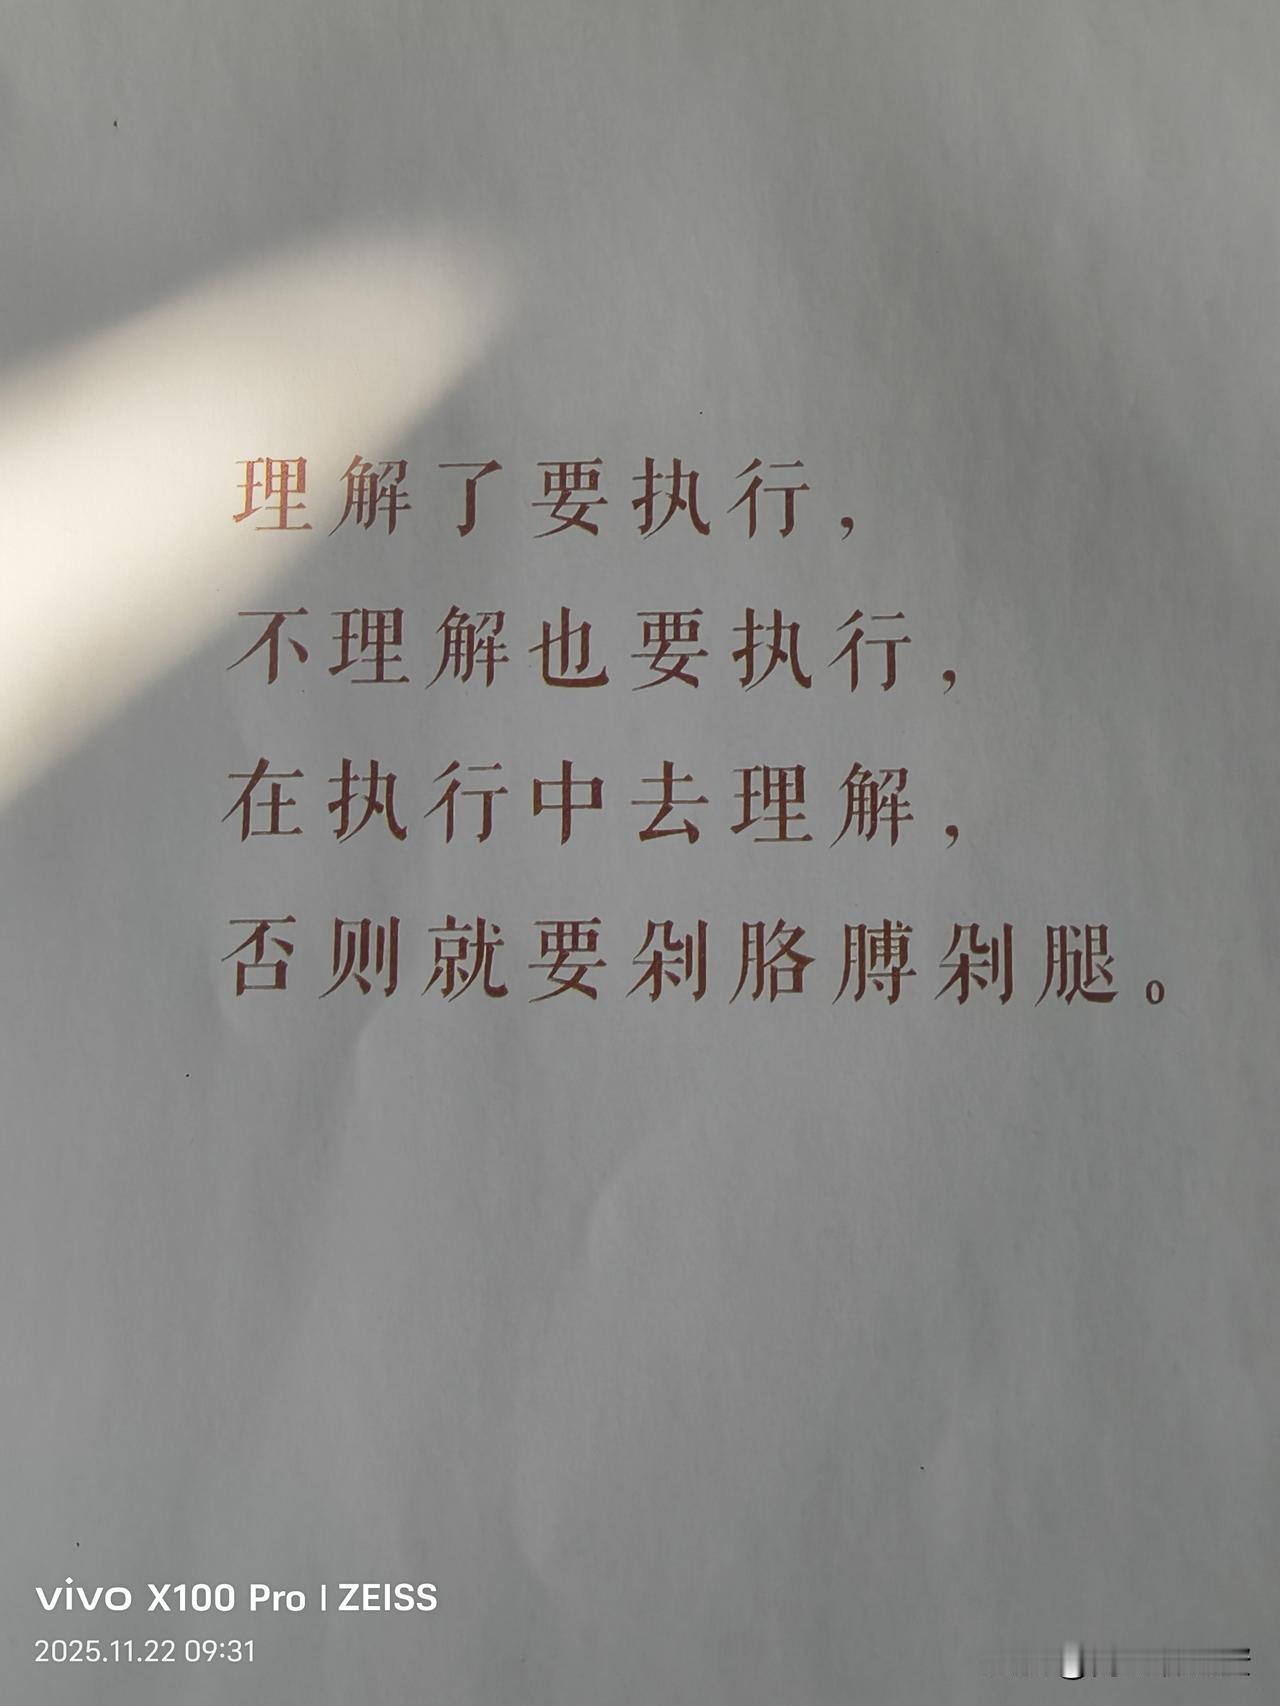 理解了要执行，
不理解也要执行，
在执行中去理解，
否则就要剁胳膊剁腿。
vivo X100 Pro | ZEISS
2025.11.22 09:31